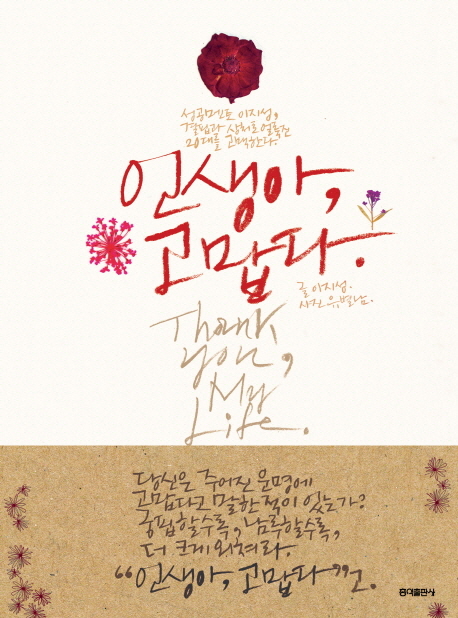 성공멘토 이지성,
결핍과 상처로 얼룩진
20대를 고백한다.
인생아,
고맙다.
글 이지성.
사진 유별남.
Thank
you,
My
Life.
당신은 주어진 운명에
고맙다고 말한 적이 있는가?
궁핍할수록, 남루할수록,
더 크게 외쳐라.
“인생아, 고맙다”고.
홍익출판사